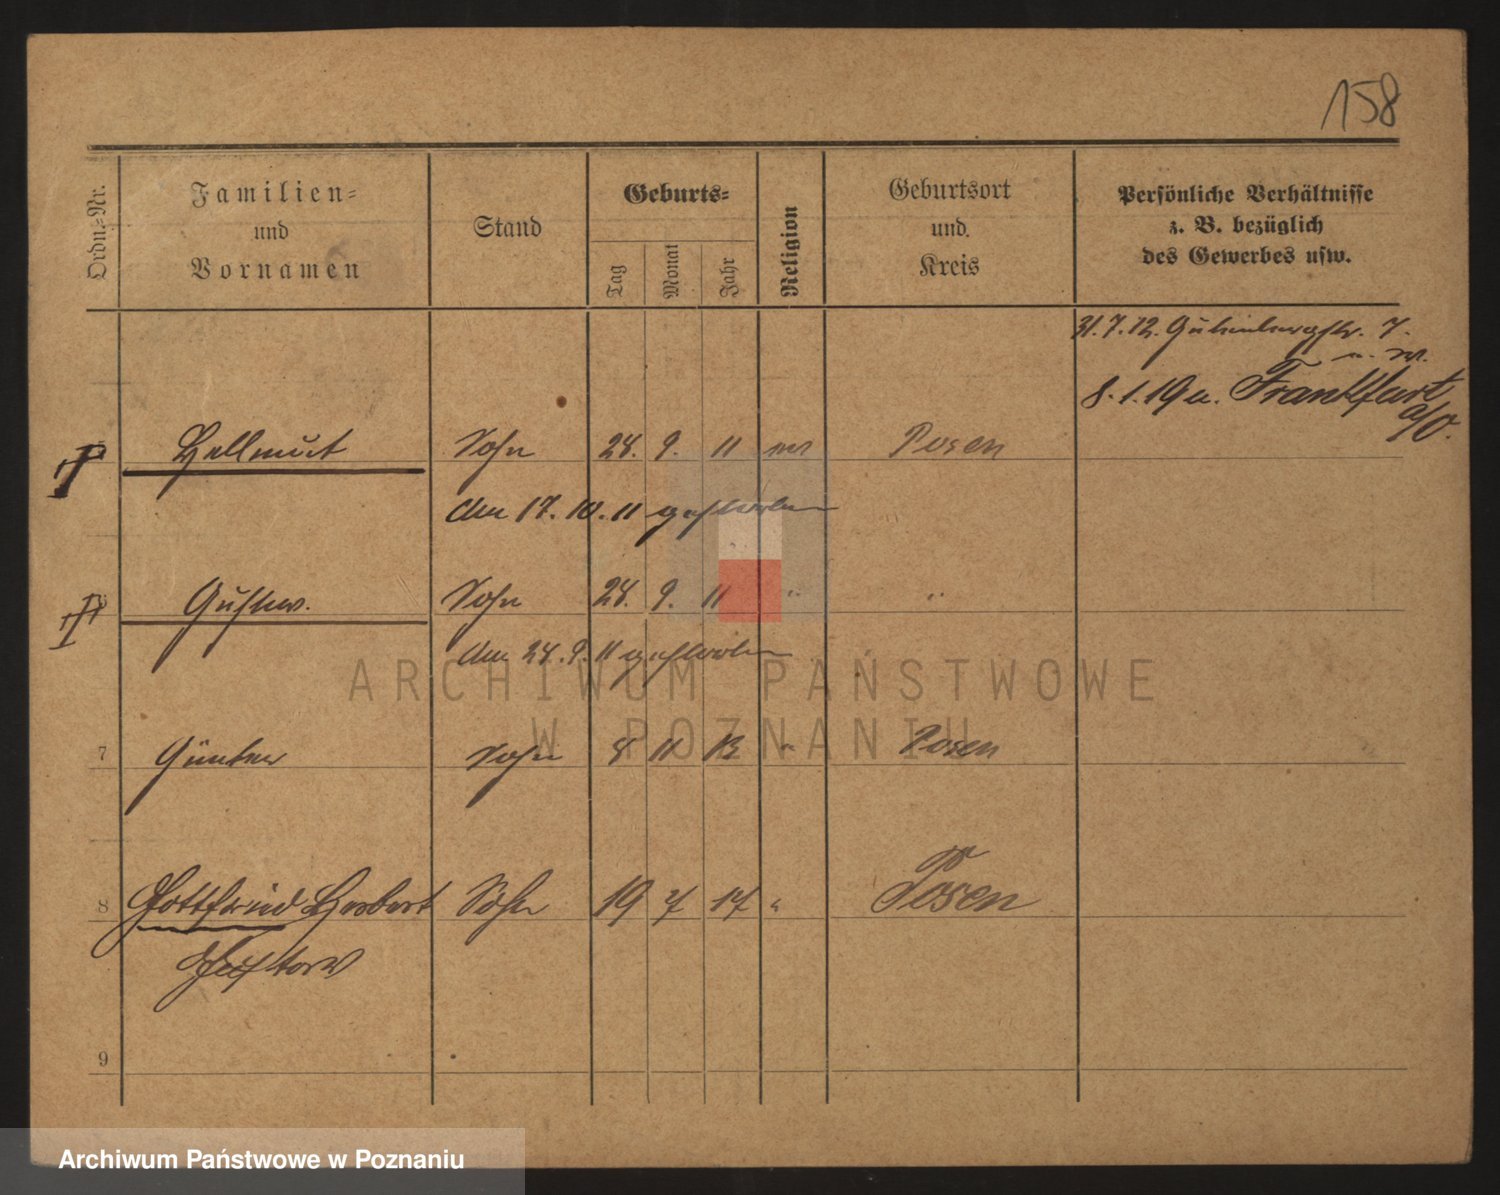 158
Ordn.-Nr.
Familien-
und
Vornamen
Stand
Geburts-
Tag
Monat
Jahr
Religion
Geburtsort
und
Kreis
Persönliche Verhältnisse
z. B. bezüglich
des Gewerbes usw.
31.7.12. Gutenbergstr. 7.
8.1.19 a. Frankfurt
a/O.
5 Hellmut Sohn 28. 9. 11 Posen
Am 17.10.11 gestorben
6 Gustav. Sohn 28. 9. 11 " "
Am 28.9.11 gestorben
7 Günter Sohn 8 11 13 " Posen
8 Gottfried Herbert Sohn 19 7 17 " Posen
Gustav
9
ARCHIWUM PAŃSTWOWE
W POZNANIU
Archiwum Państwowe w Poznaniu